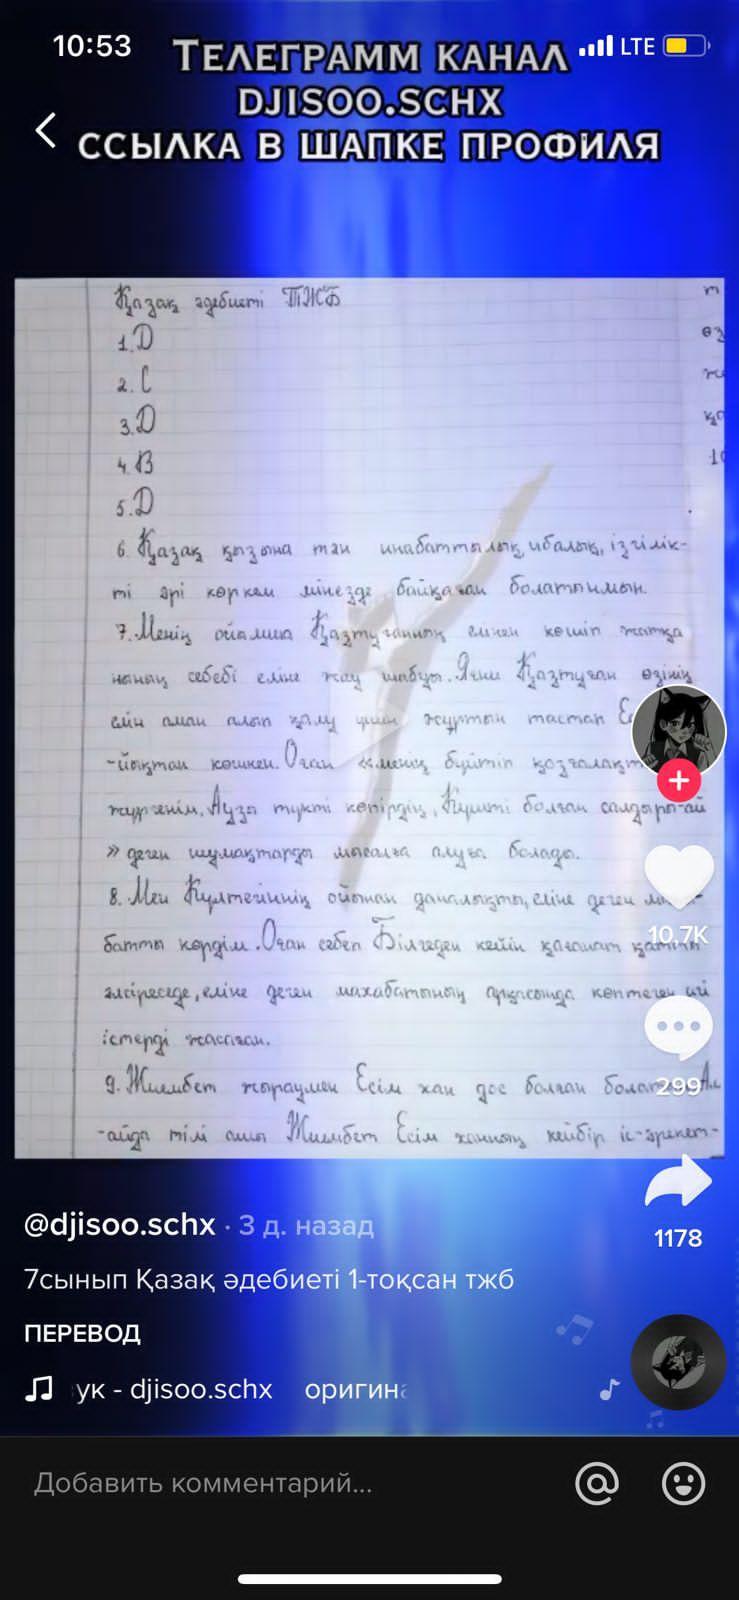 10:53
LTE
ТЕЛЕГРАММ КАНАЛ
DJISOO.SCHX
ССЫЛКА В ШАПКЕ ПРОФИЛЯ
Қазақ әдебиеті ТЖБ
1. D
2. C
3. D
4. B
5. D
6. Қазақ қызына тән инабаттылық, ибалық, ізгілік-
ті әрі көркем мінезде байқаған болатынмын.
7. Менің ойымша Қазтуғанның елінен көшіп жатқа
нының себебі еліне жау шабуы. Яғни Қазтуған өзінің
елін аман алып қалу үшін жұртын тастап
-йықтан көшкен. Оған «менің бүйтіп
жүргенім, Аузы түкті кәпірдің, Күшті болған салдары-ай
» деген шумақтарды мысалға алуға болады.
8. Мен Күлтегіннің ойынан даналықты, еліне деген
батты көрдім. Оған себеп Білгеден кейін қағанат
әлсіресе де, еліне деген махабатының арқасында көптеген игі
істерді жасаған.
9. Жиембет жыраумен Есім хан дос болған
-айда тілі ащы Жиембет Есім ханның кейбір іс-әрекет-
10.7K
299
1178
@djisoo.schx · 3 д. назад
7сынып Қазақ әдебиеті 1-тоқсан тжб
ПЕРЕВОД
ук - djisoo.schx оригин
Добавить комментарий...